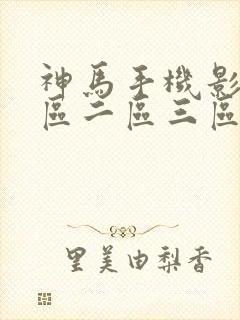 神馬手機影
區二區三區
里美由梨香